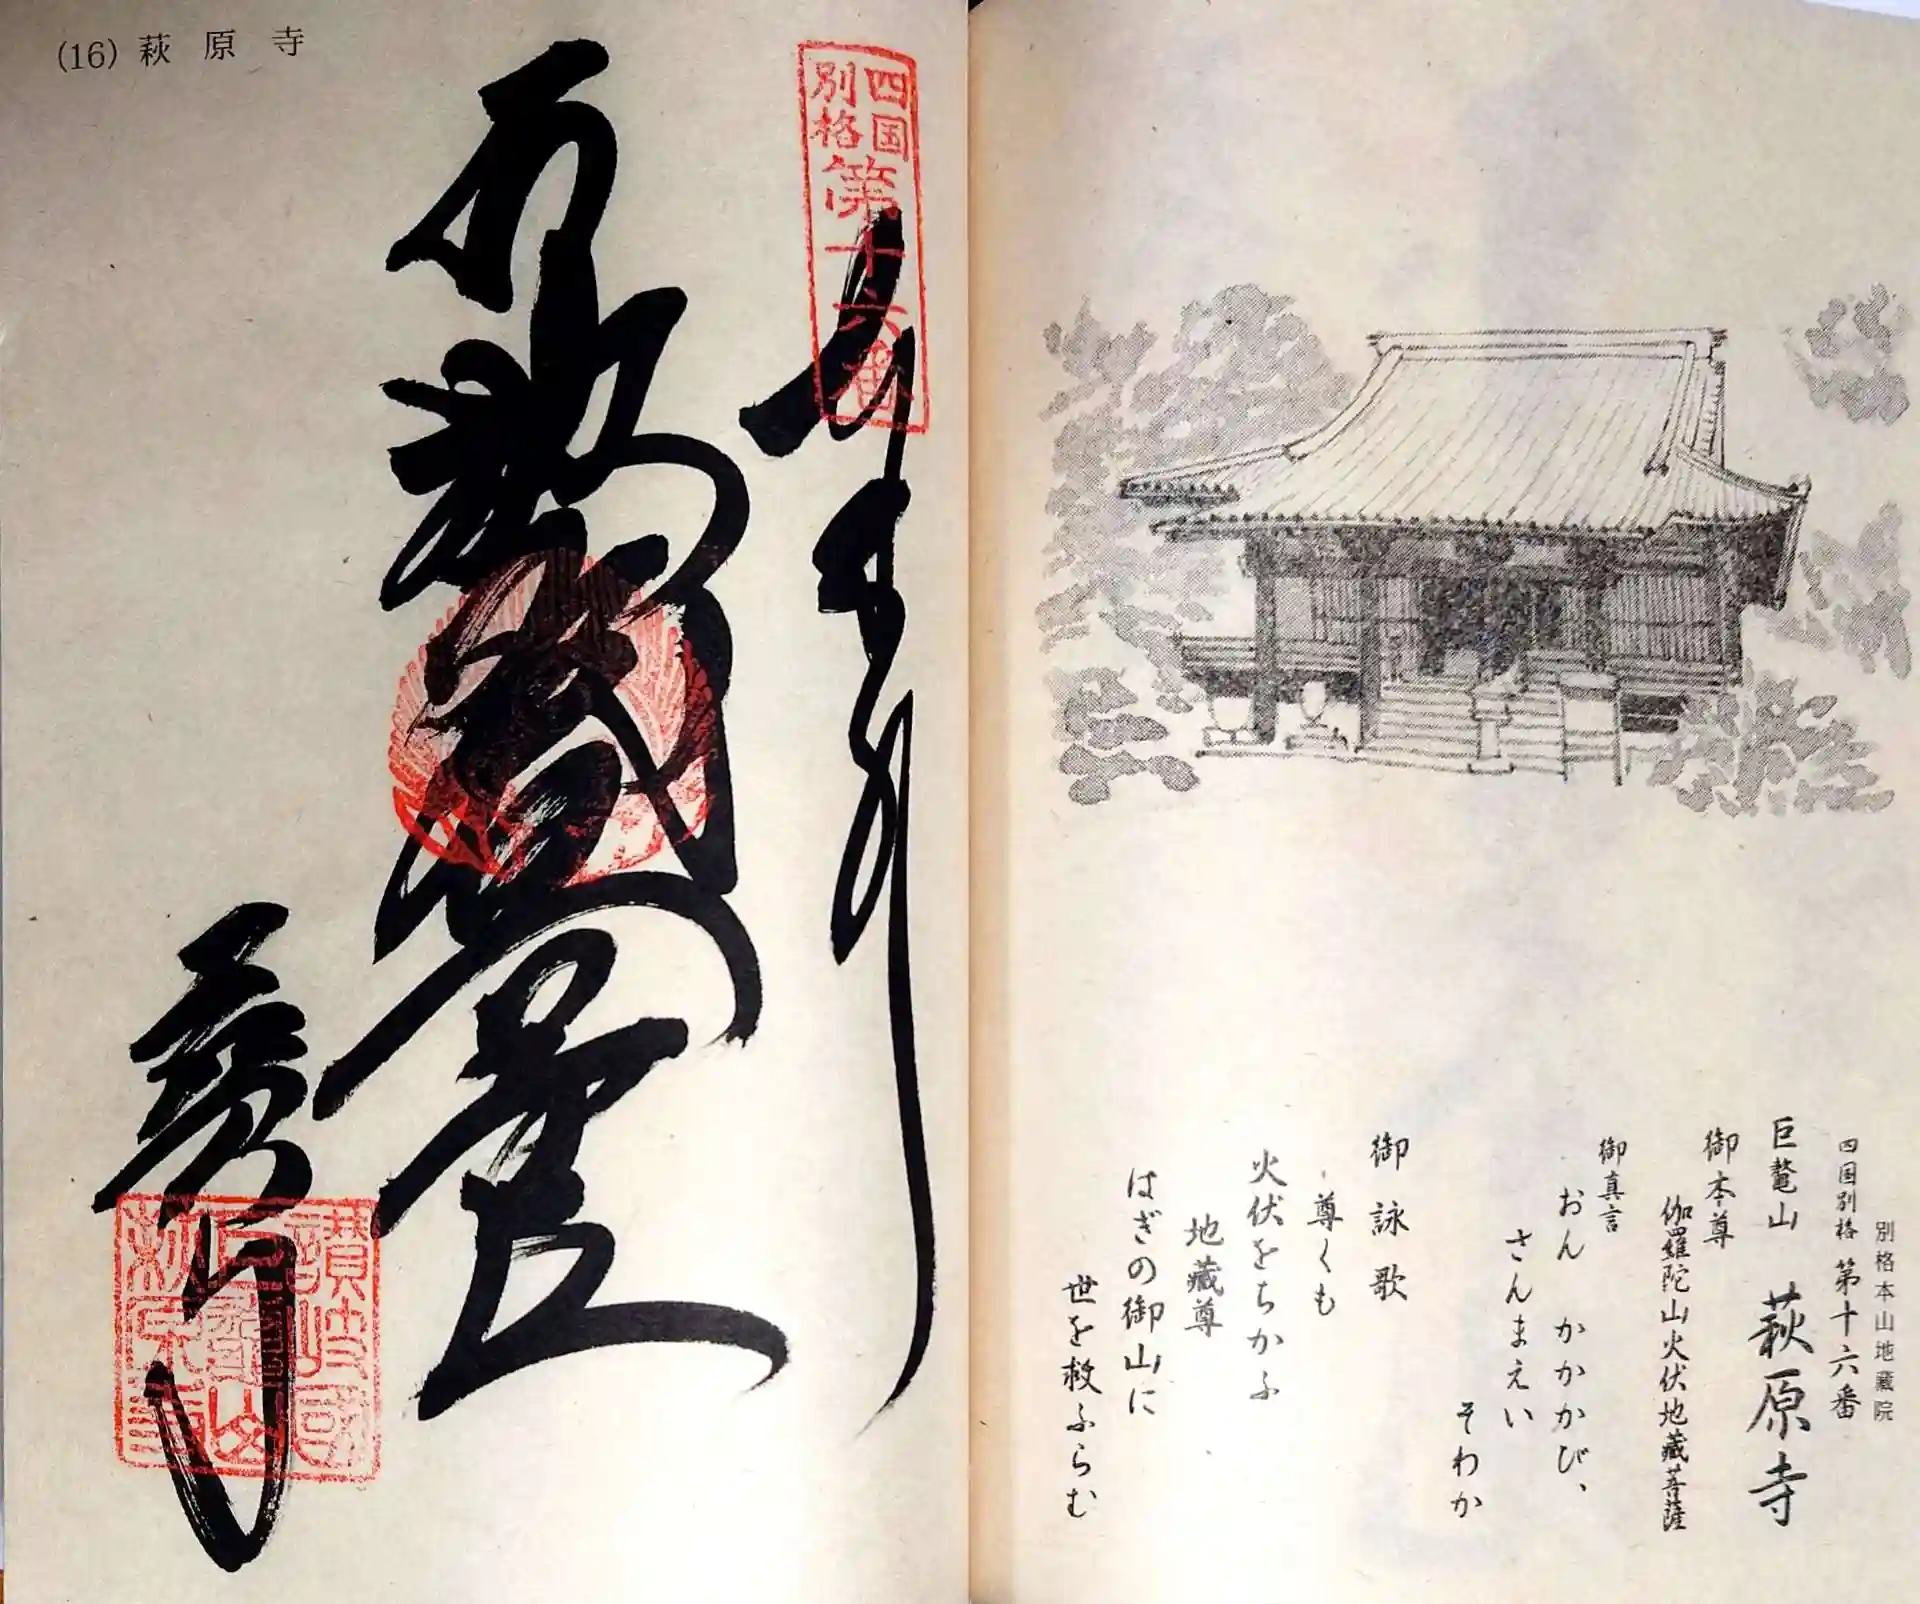 (16) 萩原寺
四国
別格
第十六番
讃岐國
巨鼇山
萩原寺
別格本山地蔵院
四国別格 第十六番
巨鼇山 萩原寺
御本尊
伽羅陀山火伏地蔵菩薩
御真言
おん かかかび、
さんまえい
そわか
御詠歌
尊くも
火伏をちかふ
地蔵尊
はぎの御山に
世を救ふらむ